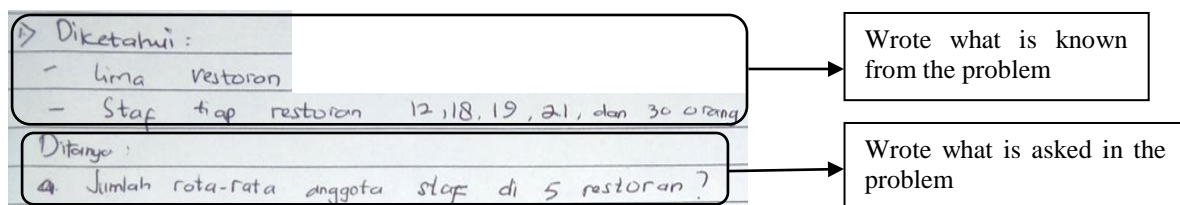 1) Diketahui :
- lima restoran
- Staf tiap restoran 12, 18, 19, 21, dan 30 orang
Ditanya :
a. Jumlah rata-rata anggota staf di 5 restoran?
Wrote what is known
from the problem
Wrote what is asked in the
problem